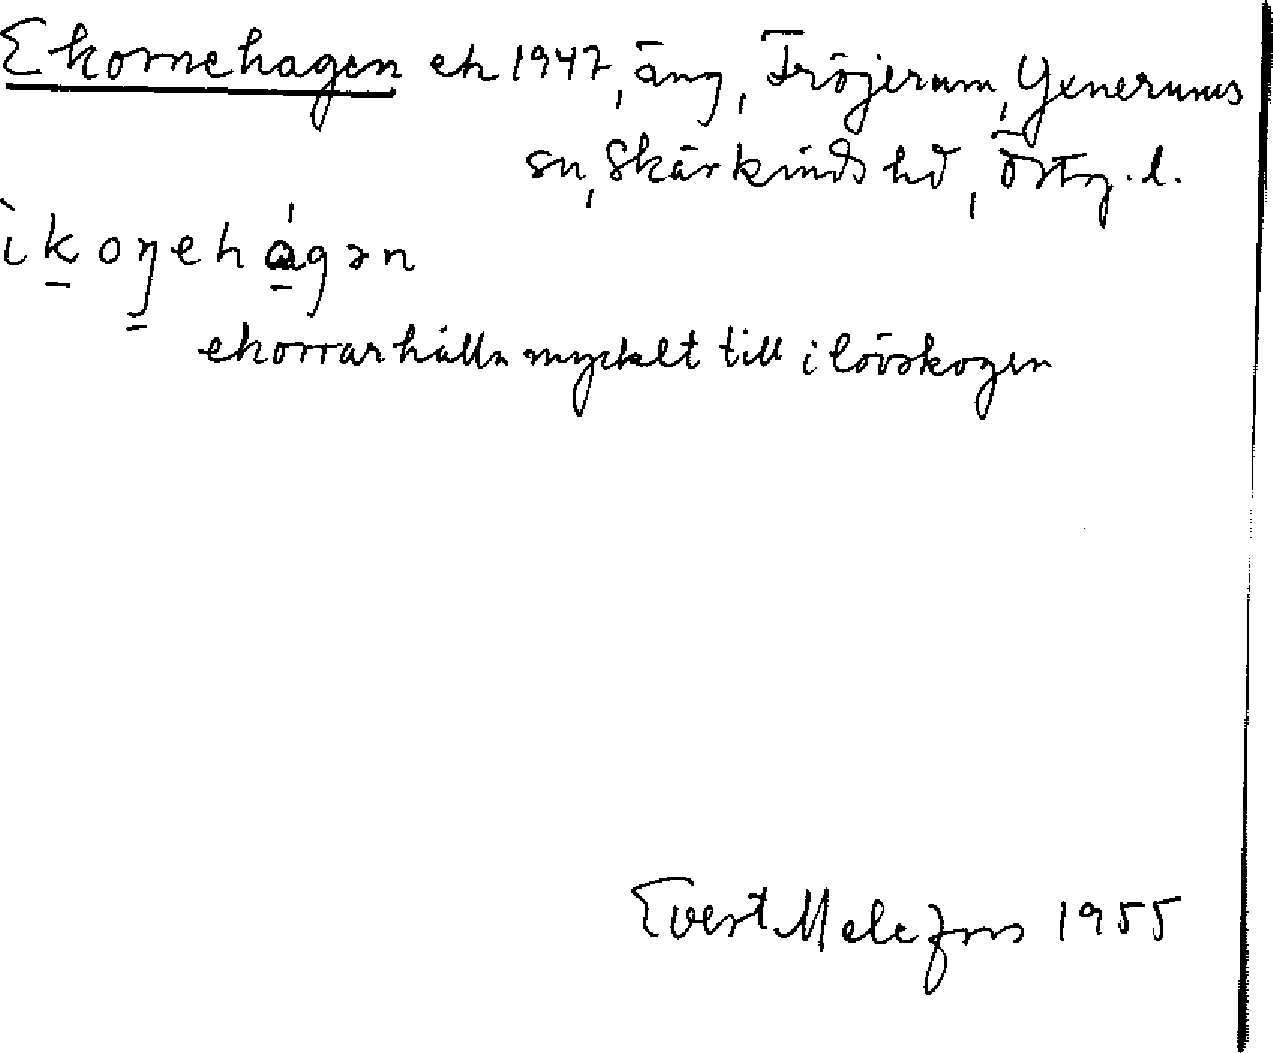 Ekornehagen ek 1947, äng, Fröjerum, Yxnerums
sn, Skärkinds hd, Östg.l.
ìkoŋehágən
ekorrar hålla mycket till i lövskogen
Evert Melefors 1955